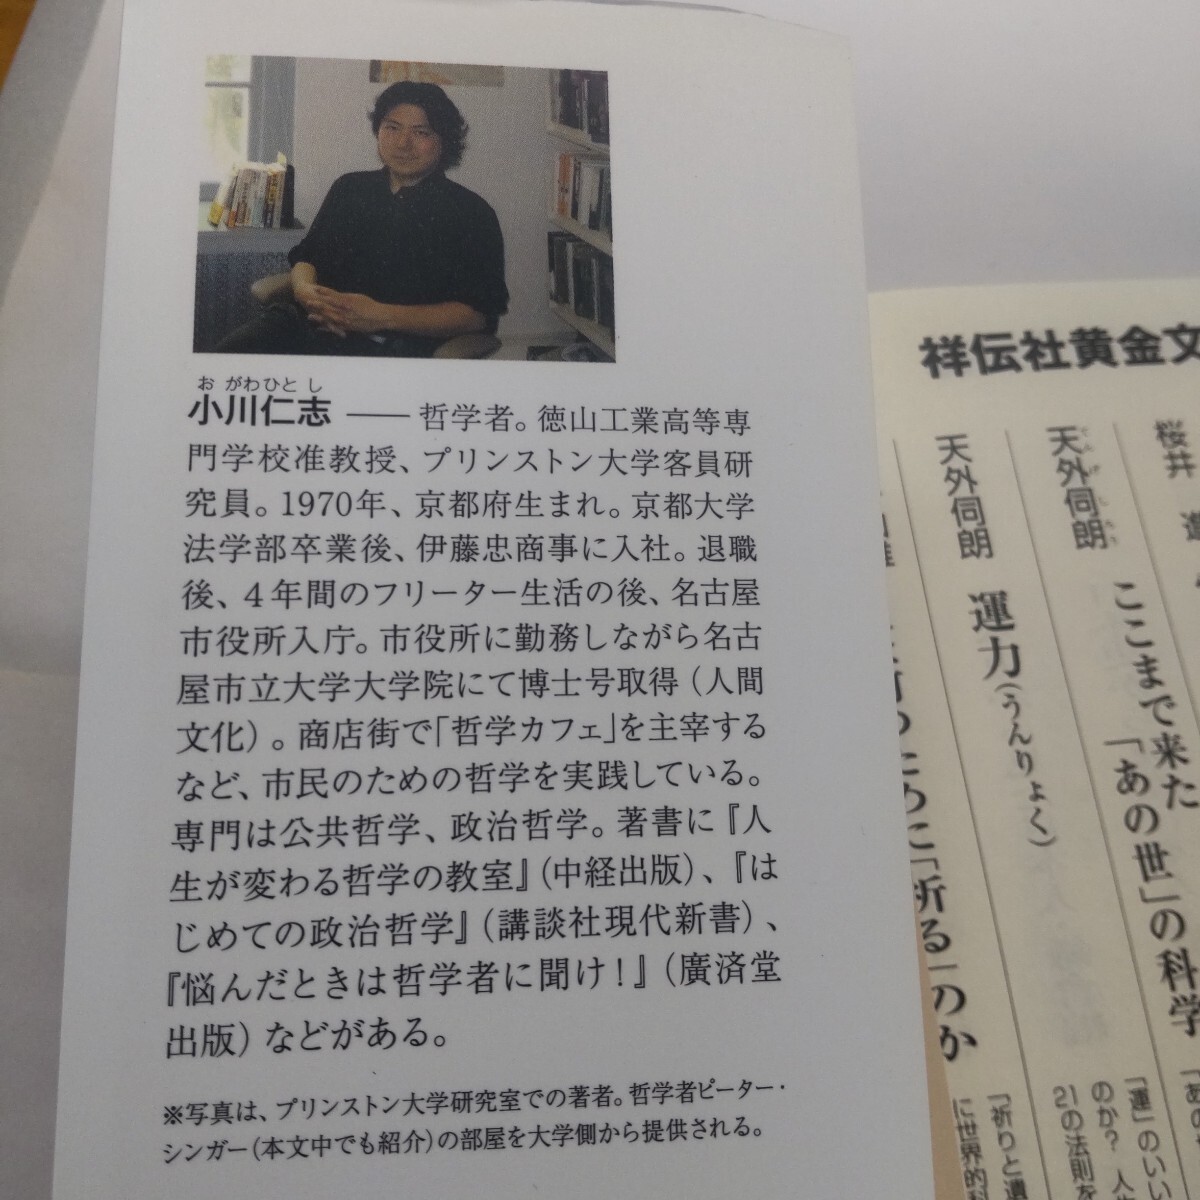 お がわひと し
小川仁志 ―― 哲学者。徳山工業高等専
門学校准教授、プリンストン大学客員研
究員。1970年、京都府生まれ。京都大学
法学部卒業後、伊藤忠商事に入社。退職
後、4年間のフリーター生活の後、名古屋
市役所入庁。市役所に勤務しながら名古
屋市立大学大学院にて博士号取得（人間
文化）。商店街で「哲学カフェ」を主宰する
など、市民のための哲学を実践している。
専門は公共哲学、政治哲学。著書に『人
生が変わる哲学の教室』（中経出版）、『は
じめての政治哲学』（講談社現代新書）、
『悩んだときは哲学者に聞け！』（廣済堂
出版）などがある。
※写真は、プリンストン大学研究室での著者。哲学者ピーター・
シンガー（本文中でも紹介）の部屋を大学側から提供される。
祥伝社黄金文
桜井
天外伺朗
ここまで来た
「あの世」の科学
天外伺朗
運力（うんりょく）
「運」のいい
のか？ 人
21の法則を
ために「祈る」のか
「祈りと遺
に世界的科